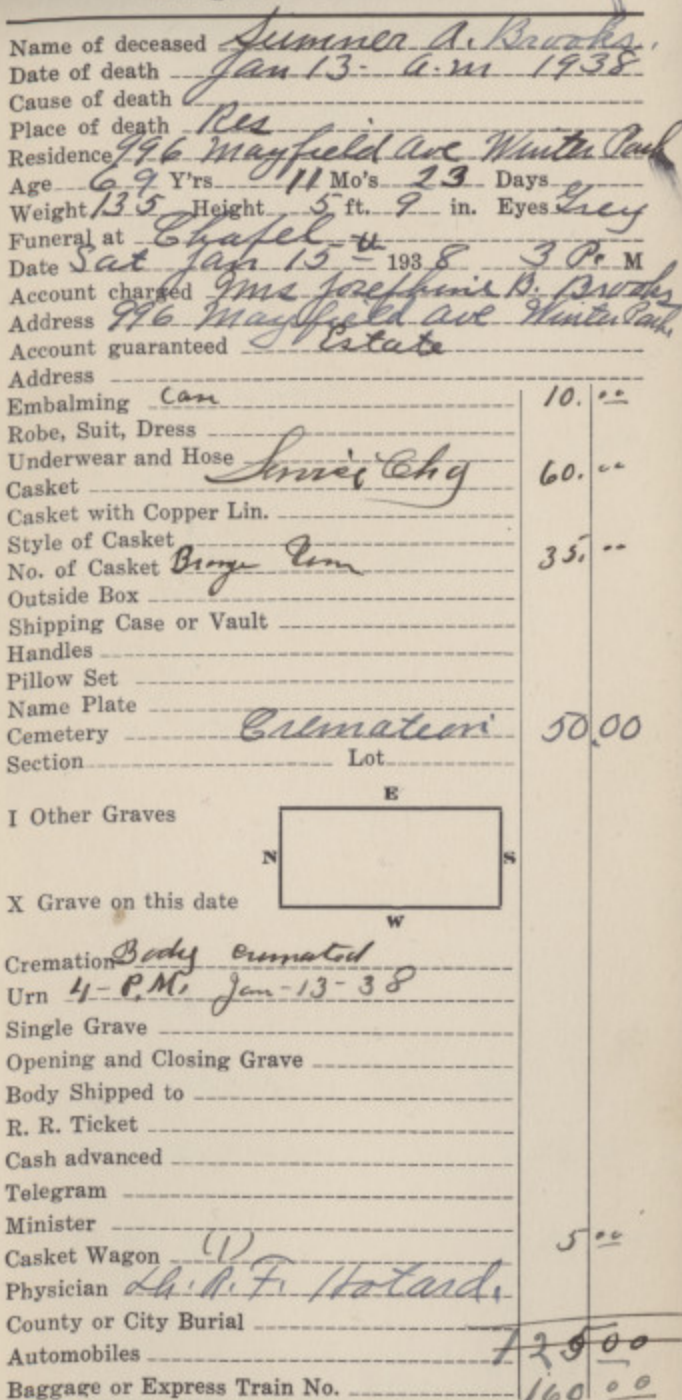 Name of deceased Sumner A. Brooks.
Date of death Jan 13 - a.m 1938
Cause of death
Place of death Res
Residence 996 Mayfield Ave Winter Park
Age 69 Y'rs 11 Mo's 23 Days
Weight 135 Height 5 ft. 9 in. Eyes Grey
Funeral at Chapel
Date Sat Jan 15th 1938 3 P. M
Account charged Mrs Josephine B. Brooks
Address 996 Mayfield Ave Winter Park.
Account guaranteed Estate
Address
Embalming Can 10.00
Robe, Suit, Dress
Underwear and Hose
Casket Service Chg 60.00
Casket with Copper Lin.
Style of Casket
No. of Casket Bronze Urn 35.00
Outside Box
Shipping Case or Vault
Handles
Pillow Set
Name Plate
Cemetery Cremation 50.00
Section Lot
E
I Other Graves
N S
X Grave on this date
W
Cremation Body cremated
Urn 4 - P.M. Jan-13-38
Single Grave
Opening and Closing Grave
Body Shipped to
R. R. Ticket
Cash advanced
Telegram
Minister
Casket Wagon (1) 5.00
Physician Dr. R. F. Hotard.
County or City Burial
Automobiles
Baggage or Express Train No. 160 00